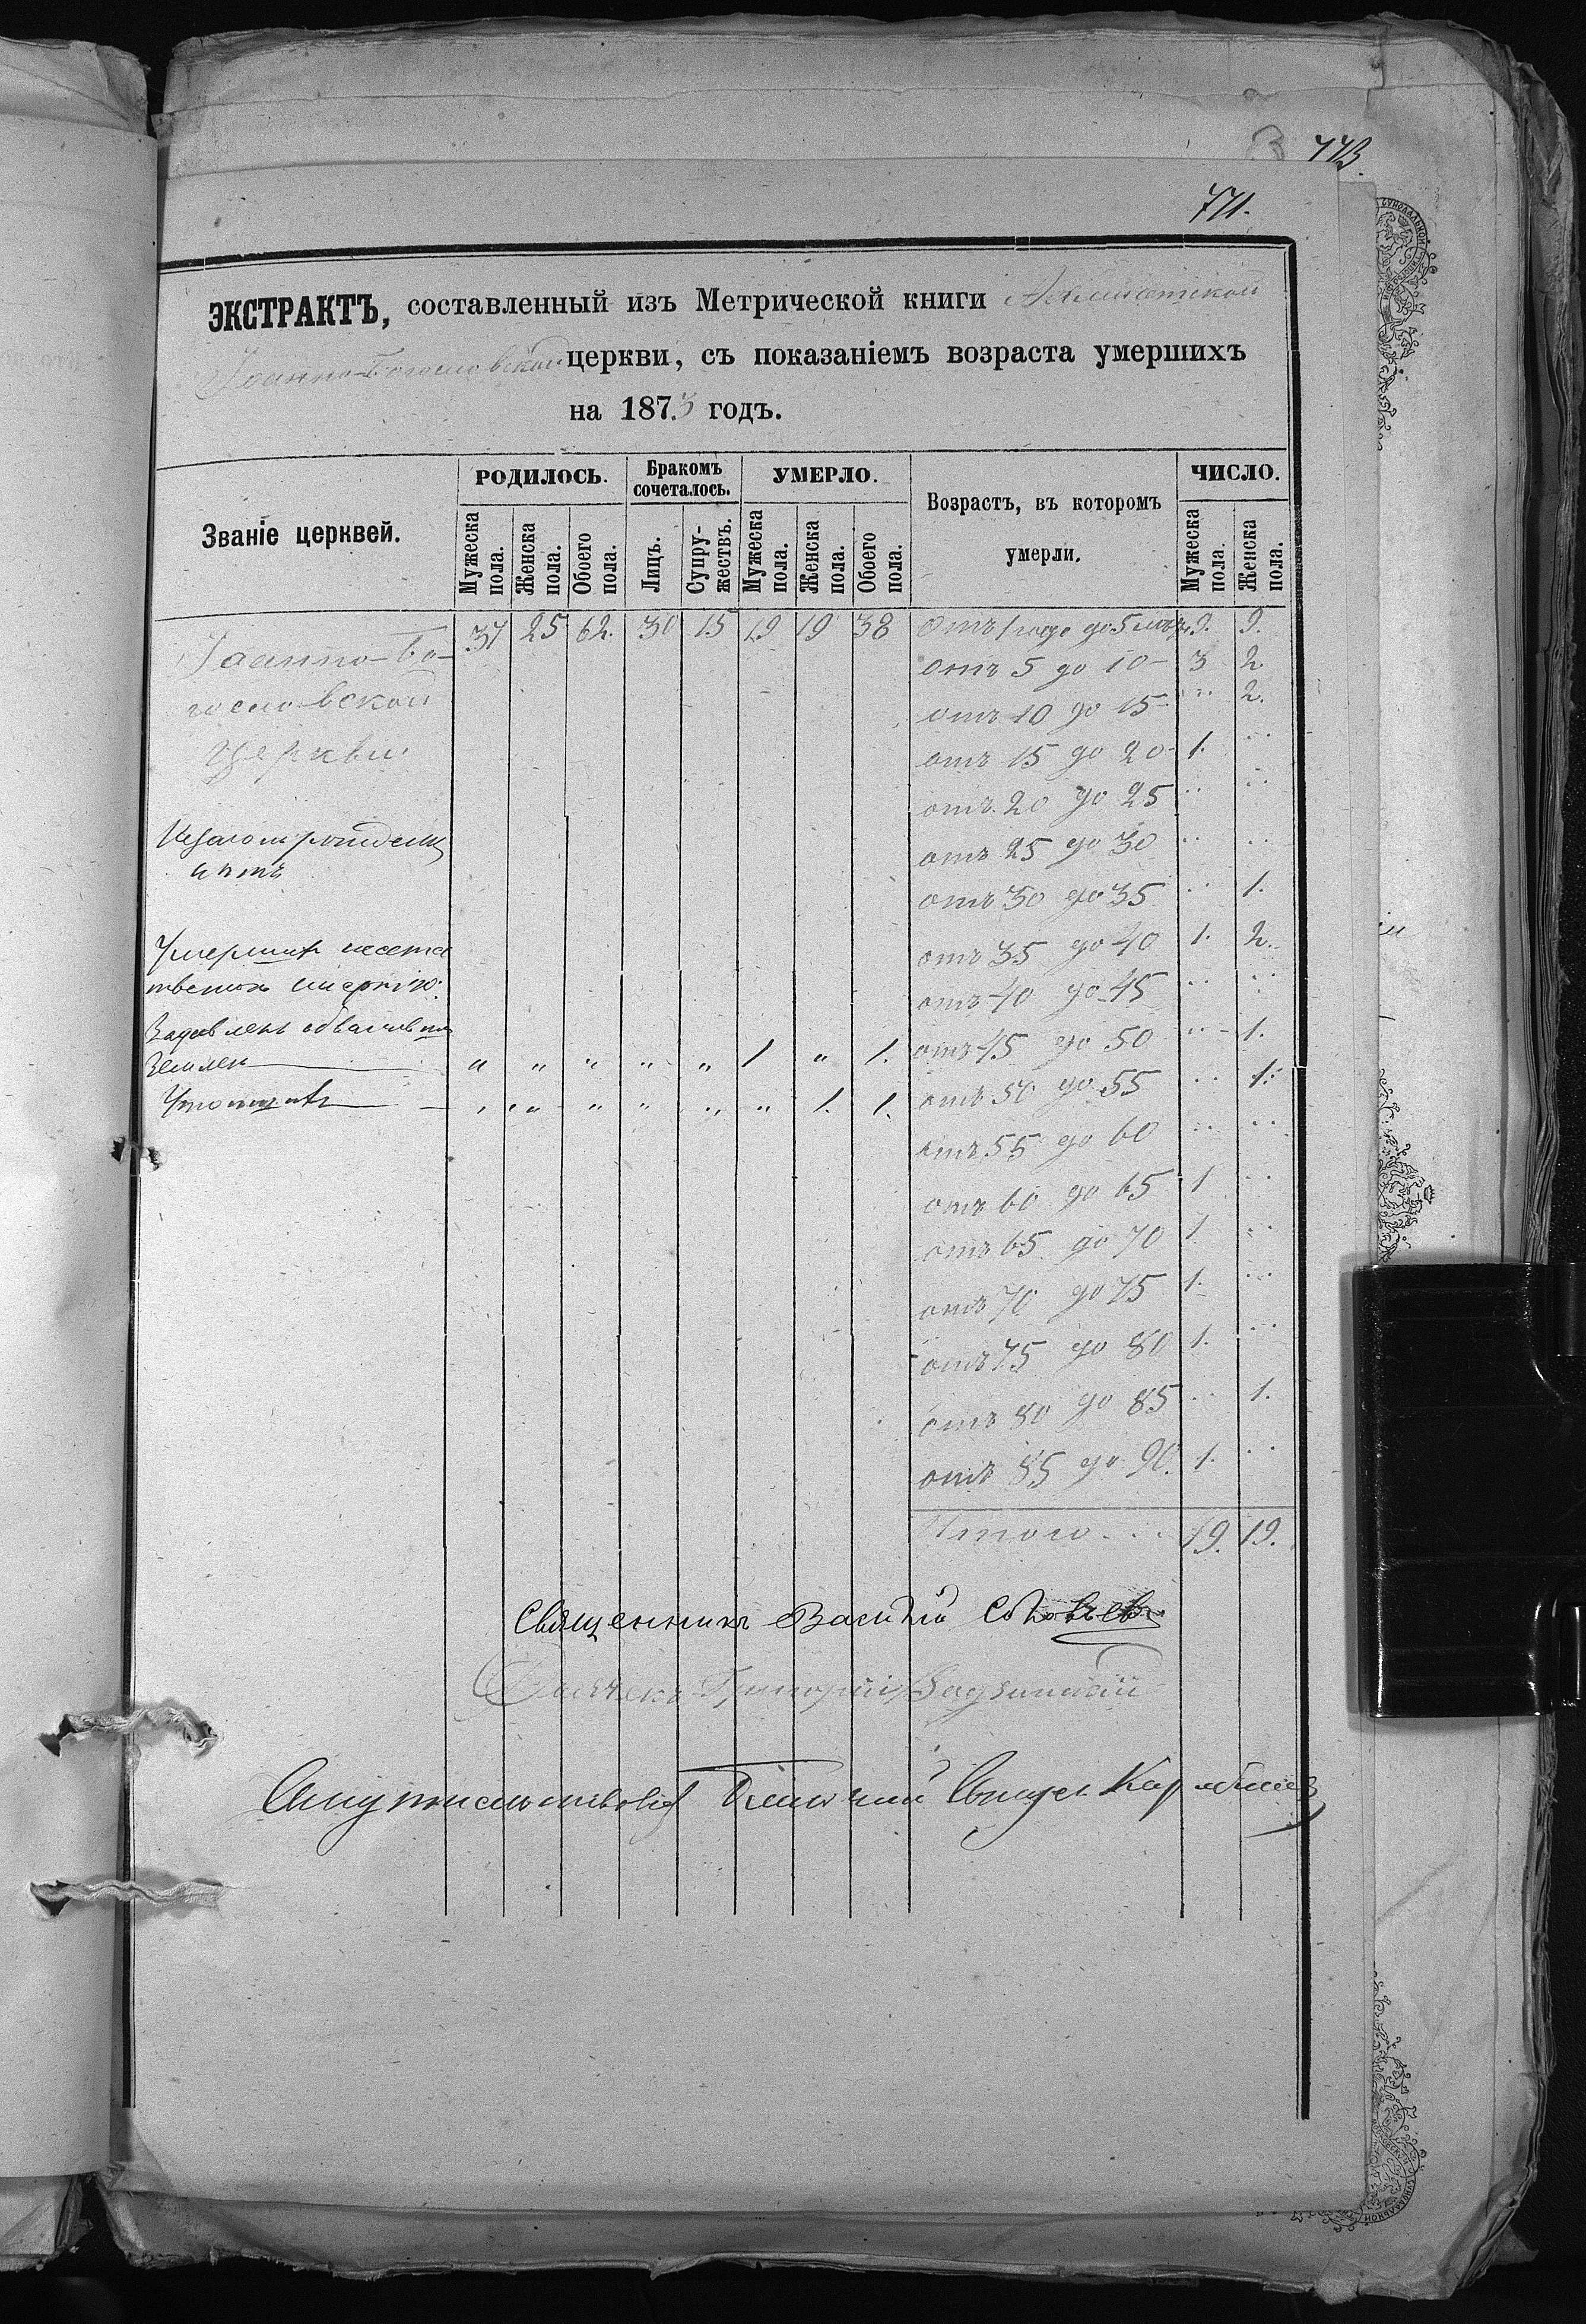 773.
771.
ЭКСТРАКТЪ, составленный изъ Метрической книги
Іоанно-Богословской церкви, съ показаніемъ возраста умершихъ
на 1873 годъ.
Званіе церквей.
РОДИЛОСЬ.
Бракомъ сочеталось.
УМЕРЛО.
Возрастъ, въ которомъ умерли.
ЧИСЛО.
Мужеска пола.
Женска пола.
Обоего пола.
Лицъ.
Супружествъ.
Мужеска пола.
Женска пола.
Обоего пола.
Мужеска пола.
Женска пола.
Іоанно-Бо- 37 25 62. 30 15 19 19 38 Отъ 1 года до 5 9. 9.
гословской отъ 5 до 10 - 3 2
Церкви отъ 10 до 15 - " 2.
отъ 15 до 20 - 1. "
отъ 20 до 25 " "
Незаконрожденн отъ 25 до 30 " "
нѣтъ отъ 30 до 35 " 1.
Умершихъ неесте отъ 35 до 40 1. 2.
твеною смертію: отъ 40 до 45 " "
Задавленъ обваливш
землей " " " " " 1 " 1. отъ 45 до 50 " 1.
Утопшихъ " " " " " " 1. 1. отъ 50 до 55 " 1.
отъ 55 до 60 " "
отъ 60 до 65 1 "
отъ 65 до 70 1 "
отъ 70 до 75 1. "
отъ 75 до 80 1. "
отъ 80 до 85 " 1.
отъ 85 до 90. 1. "
Итого . . . 19. 19.
Священникъ Василій Соловьевъ
Григорій